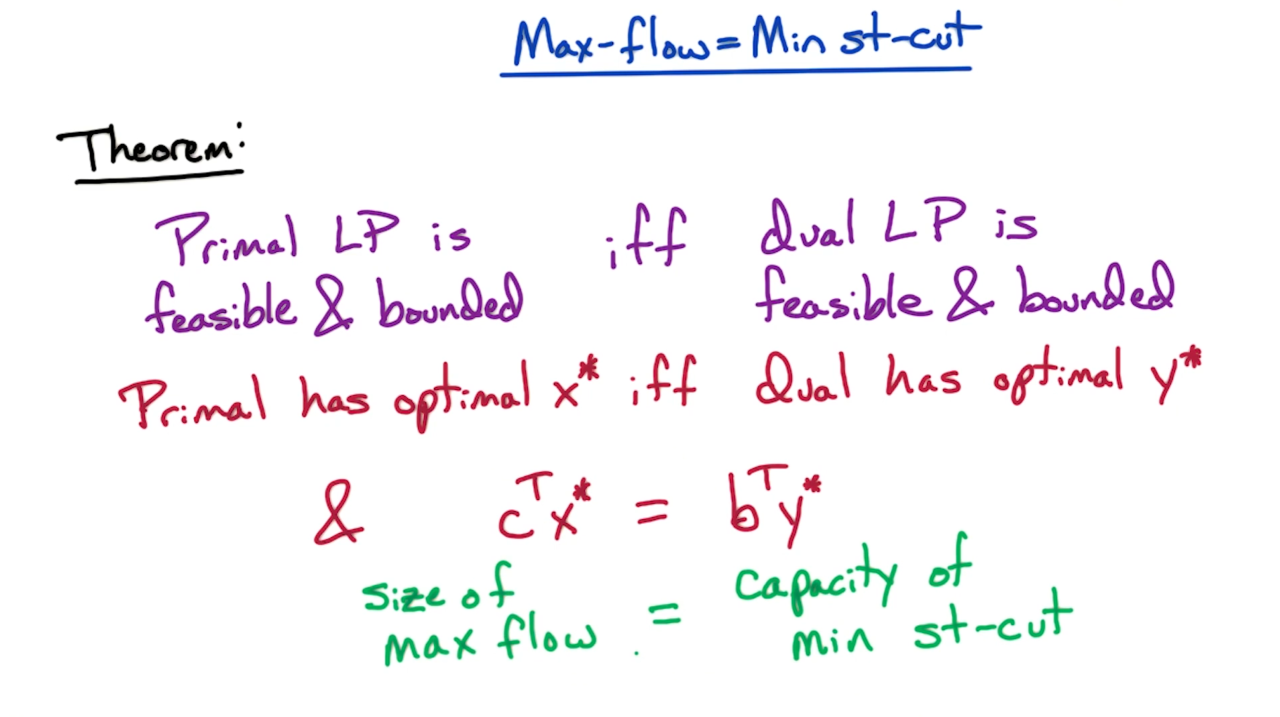 Max-flow = Min st-cut
Theorem:
Primal LP is iff dual LP is
feasible & bounded feasible & bounded
Primal has optimal x* iff Dual has optimal y*
& cᵀx* = bᵀy*
size of max flow = capacity of min st-cut